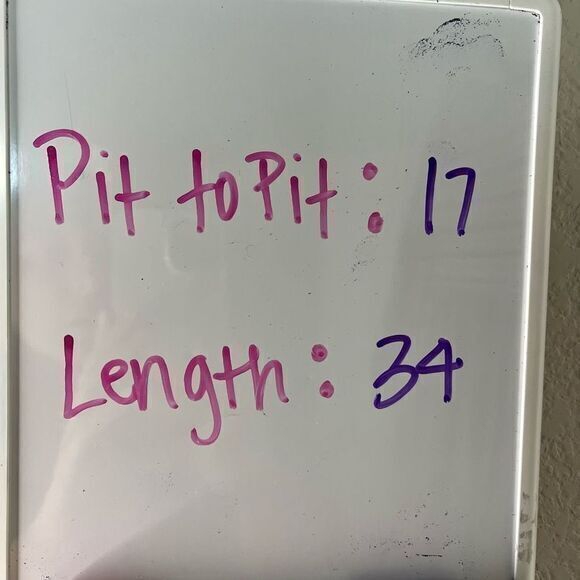 Pit to Pit: 17
Length: 34